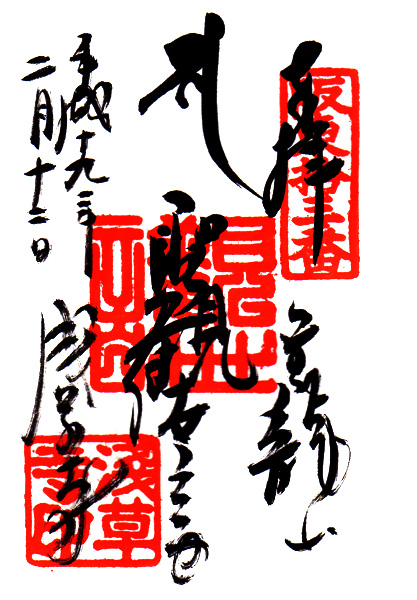 奉拝
坂東拾三番
金龍山
聖観世音
平成十九年
二月十二日
浅草寺
淺草寺印